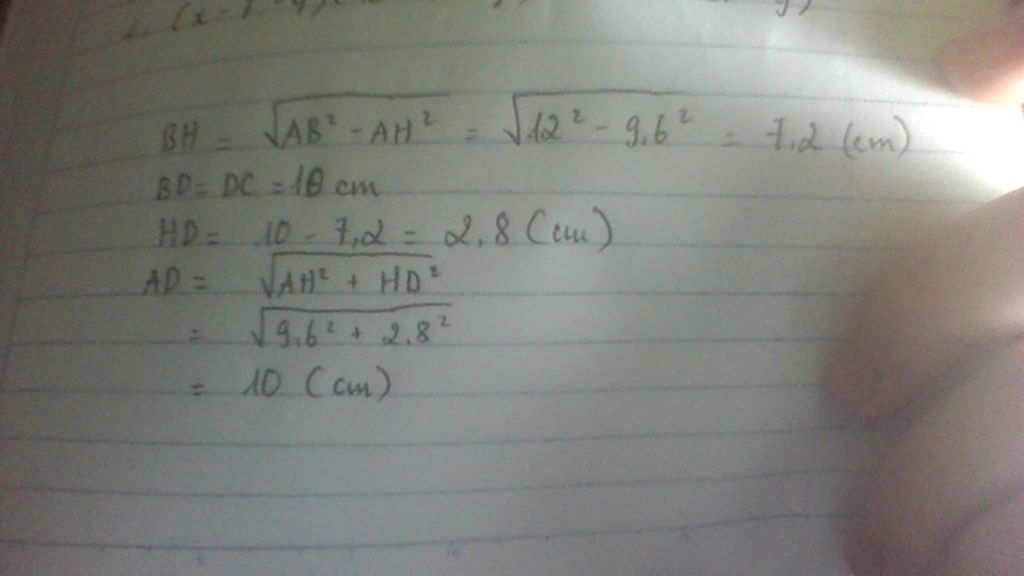 BH = √AB² - AH² = √12² - 9,6² = 7,2 (cm)
BD = DC = 10 cm
HD = 10 - 7,2 = 2,8 (cm)
AD = √AH² + HD²
= √9,6² + 2,8²
= 10 (cm)